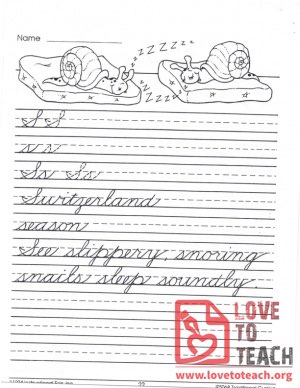 Name
zzzzzz
zzzzz
S S
s s
Ss Ss
Switzerland
season
See slippery, snoring
snails sleep soundly.
LOVE
TO
TEACH
www.lovetoteach.org